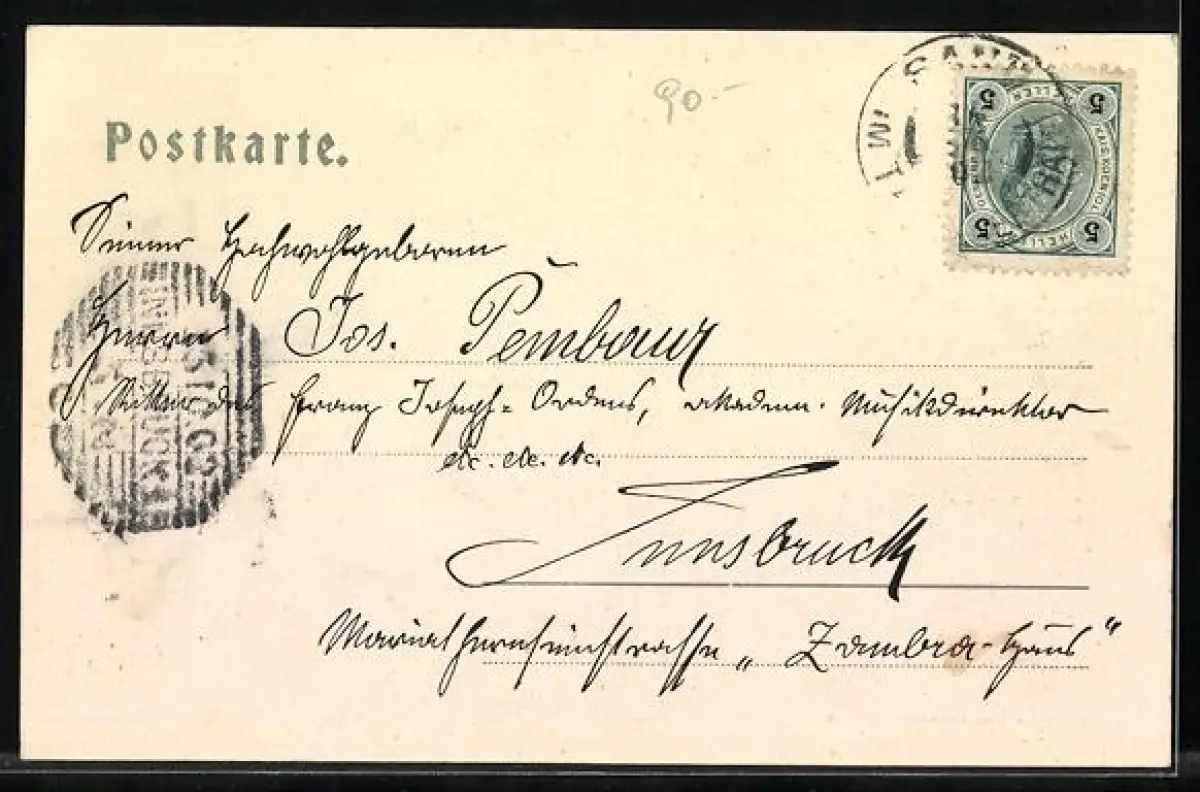 90.-
Postkarte.
Seiner Hochwohlgeboren
Herrn Jos. Pembaur
Ritter des Franz Joseph-Ordens, akadem. Musikdirektor
etc. etc. etc.
Innsbruck
Mariatheresienstrasse „Zambra-Haus"
INNSBRUCK 1
5 5
5 5
HELLER